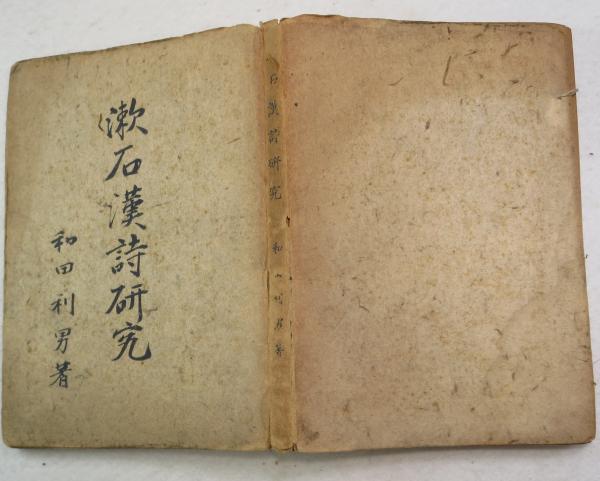 漱石漢詩研究
和田利男著
石漢詩研究 和 利男著